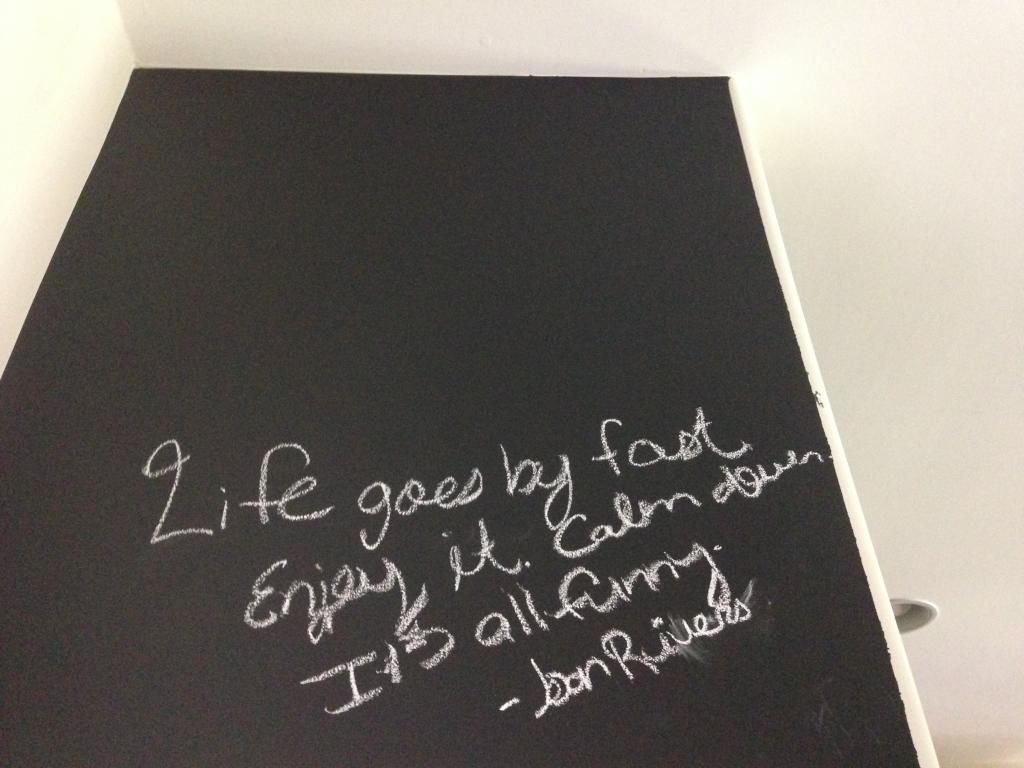 Life goes by fast.
Enjoy it. Calm down.
It's all funny.
- Joan Rivers